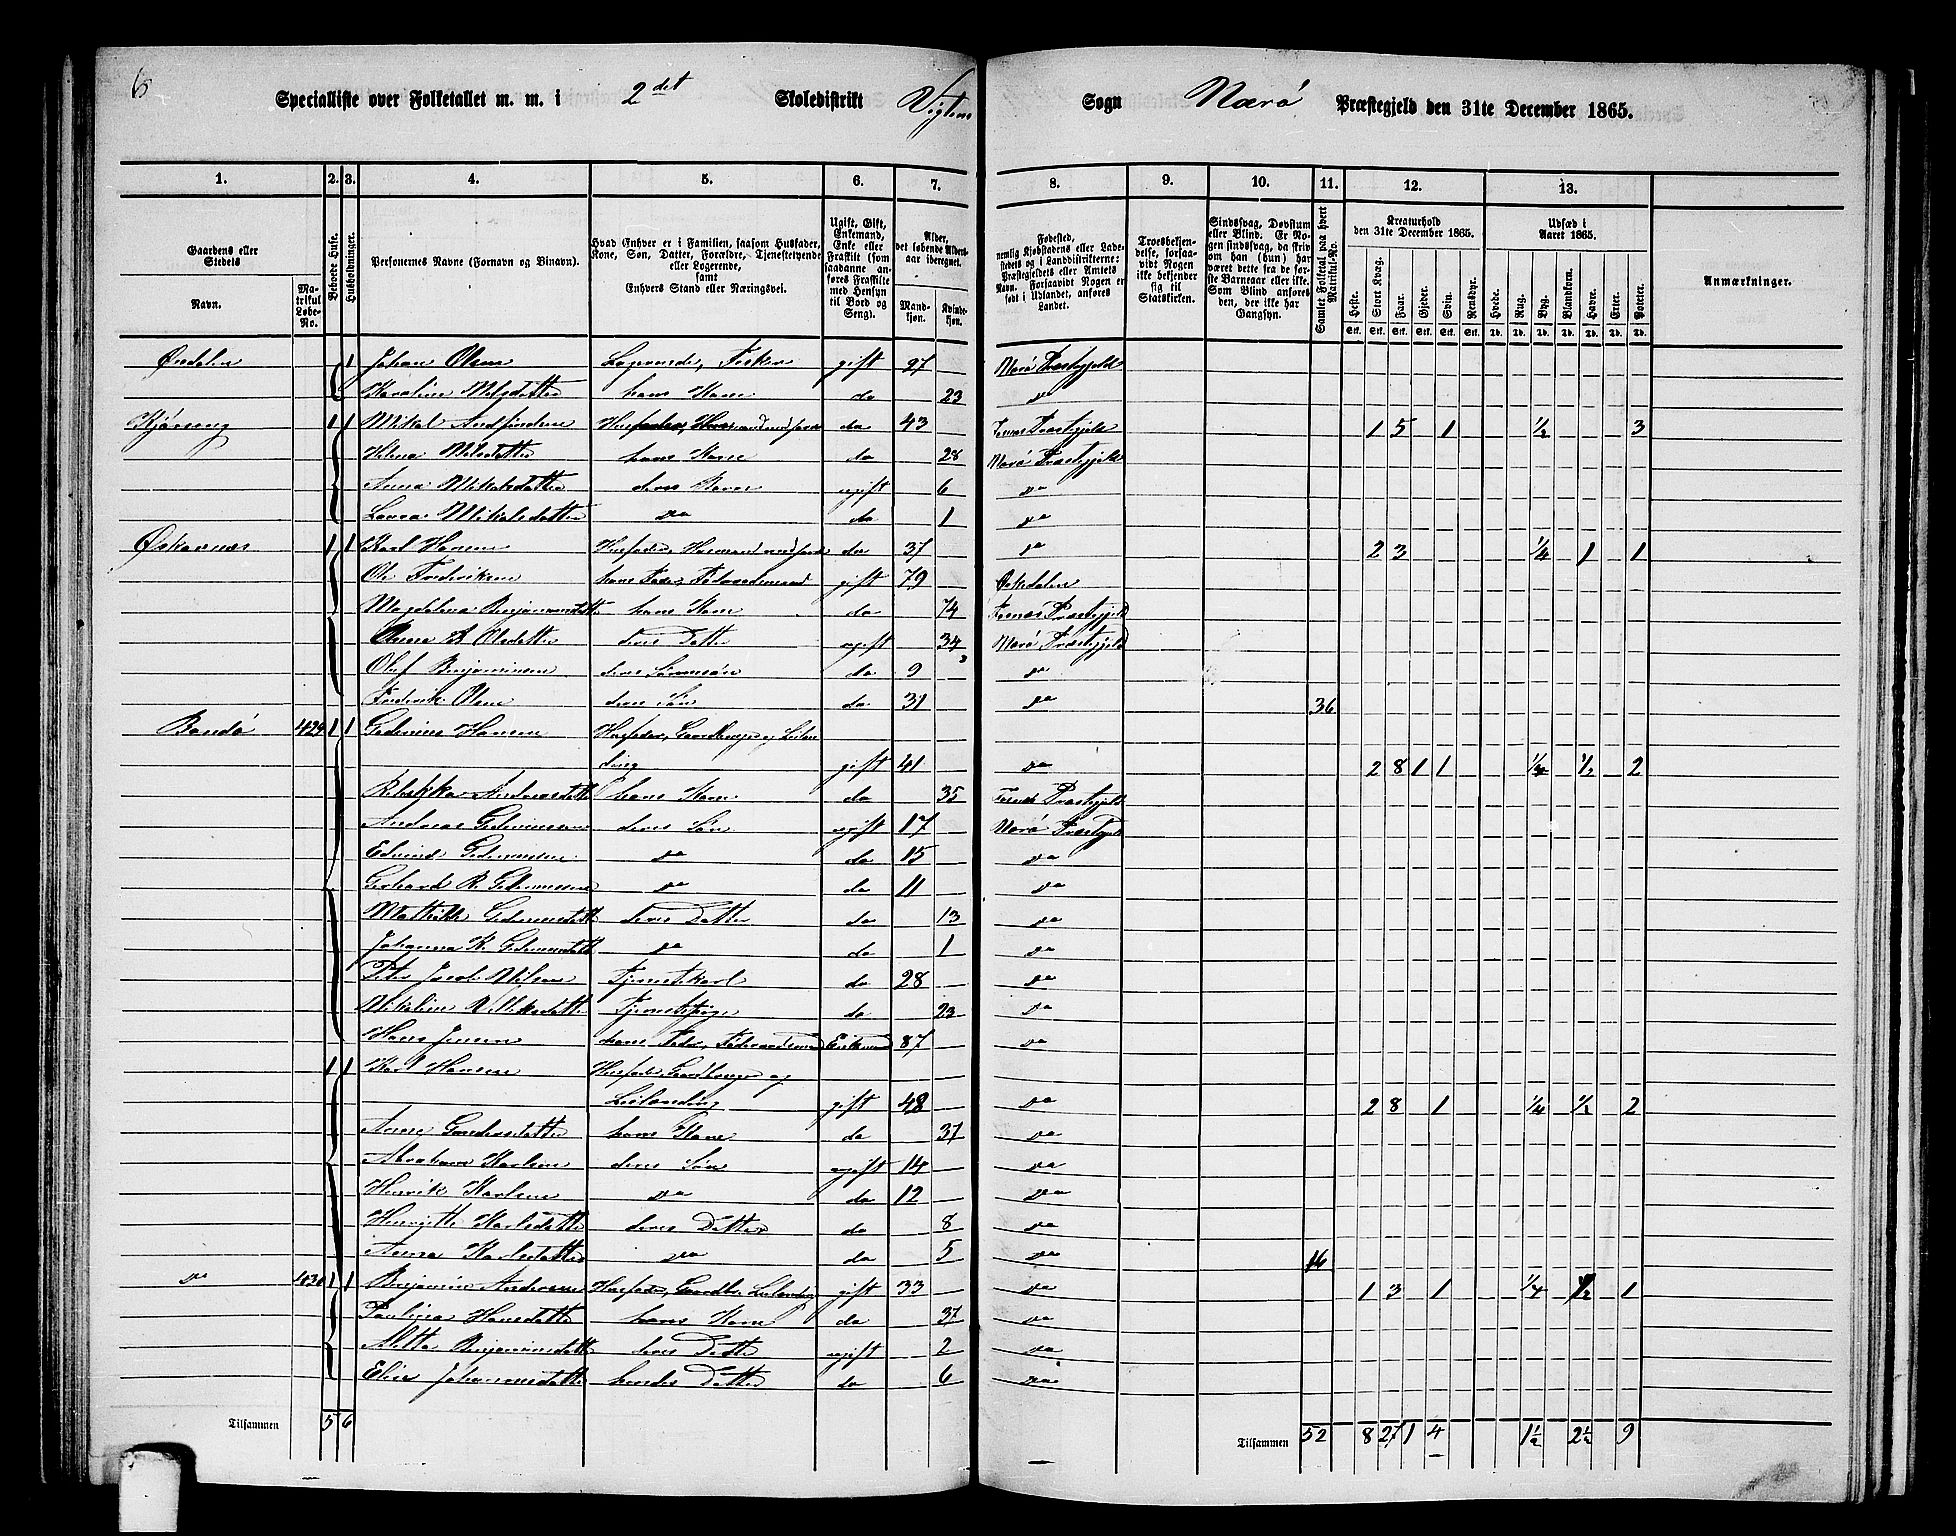 6
Specialliste over Folketallet m. m. i 2det Skoledistrikt Vigten Sogn Nærö Præstegjeld den 31te December 1865.
1. 2. 3. 4. 5. 6. 7. 8. 9. 10. 11. 12. 13.
Gaardens eller Stedets
Navn.
Matrikul Løbe-No.
Beboede Huse.
Husholdninger.
Personernes Navne (Fornavn og Binavn).
Hvad Enhver er i Familien, saasom Husfader, Kone, Søn, Datter, Forældre, Tjenestetyende eller Logerende, samt Enhvers Stand eller Næringsvei.
Ugift, Gift, Enkemand, Enke eller Fraskilt (som saadanne anføres Fraskilte med Hensyn til Bord og Seng).
Alder, det løbende Alders-aar iberegnet.
Mandkjøn.
Kvindekjøn.
Fødested, nemlig Kjøbstadens eller Ladestedets og i Landdistrikterne: Præstegjeldets eller Amtets Navn. Forsaavidt Nogen er født i Udlandet, anføres Landet.
Troesbekjendelse, forsaavidt Nogen ikke bekjender sig til Statskirken.
Sindssvag, Døvstum eller Blind. Er Nogen sindssvag, da skrives om han (hun) har været dette fra de første Barneaar eller ikke. Som Blind anføres den, der ikke har Gangsyn.
Samlet Folketal paa hvert Matrikul-No.
Kreaturhold den 31te December 1865.
Heste. Stort Kvæg. Faar. Gjeder. Svin. Rensdyr.
Udsæd i Aaret 1865.
Hvede. Rug. Byg. Blandkorn. Havre. Erter. Poteter.
Anmærkninger.
Ørdalen 1 Johan Olsen Logerende, Fisker gift 27 Nærö Præstegjeld
Karoline Nilsdatter hans Kone do 23 do
1 1 Mikal Husfader, Husmand med Jord do 43 Præstegjeld 1 5 1 1/2 3
Helena Nilsdatter hans Kone do 28 Nærö Præstegjeld
Anna Mikalsdatter deres ugift 6 do
Laura Mikalsdatter do do 1 do
1 1 Karl Hansen Husfader, Husmand med Jord do 37 do 2 3 1/4 1 1
Ole Frederiksen hans Fader, Føderaadsmand gift 79 Orkedalen
Magdalena Benjaminsdatter hans Kone do 74 Præstegjeld
B. Olsdatter deres Datter ugift 34 Nærö Præstegjeld
Oluf Benjaminsen deres Sønnesøn do 9 do
Frederik Olsen deres Søn do 31 do 36
Bondö 1 1 Hansen Husfader, Gaardbruger og Leilen
ding gift 41 do 2 8 1 1 1/4 1/2 2
Rebekka Andreasdatter hans Kone do 35 Præstegjeld
Andreas deres Søn ugift 17 Nærö Præstegjeld
do do 15 do
Gerhard R. do do 11 do
Mathilde deres Datter do 13 do
Johanna K. do do 1 do
Peter Jacob Nilsen Tjenestkarl do 28 do
Mikaline Tjenestepige do 23 do
Hans Jensen hans Fader, Føderaadsmand Enkemand 87 do
1 1 Karl Hansen Husfader, Gaardbruger og
Leilending gift 48 do 2 8 1 1/4 1/2 2
Anne hans Kone do 37 do
Abraham Karlsen deres Søn ugift 14 do
Henrik Karlsen do do 12 do
Henriette Karlsdatter deres Datter do 8 do
Anna Karlsdatter do do 5 do 16
do 1 1 Benjamin Andersen Husfader, Gaardbr. Leilending gift 33 do 1 3 1 1/4 1/2 1
Paulina Hansdatter hans Kone do 37 do
Benjaminsdatter deres Datter ugift 2 do
Johannesdatter hendes Datter do 6 do
Tilsammen 5 6 Tilsammen 52 8 27 1 4 1 1/2 2 1/2 9